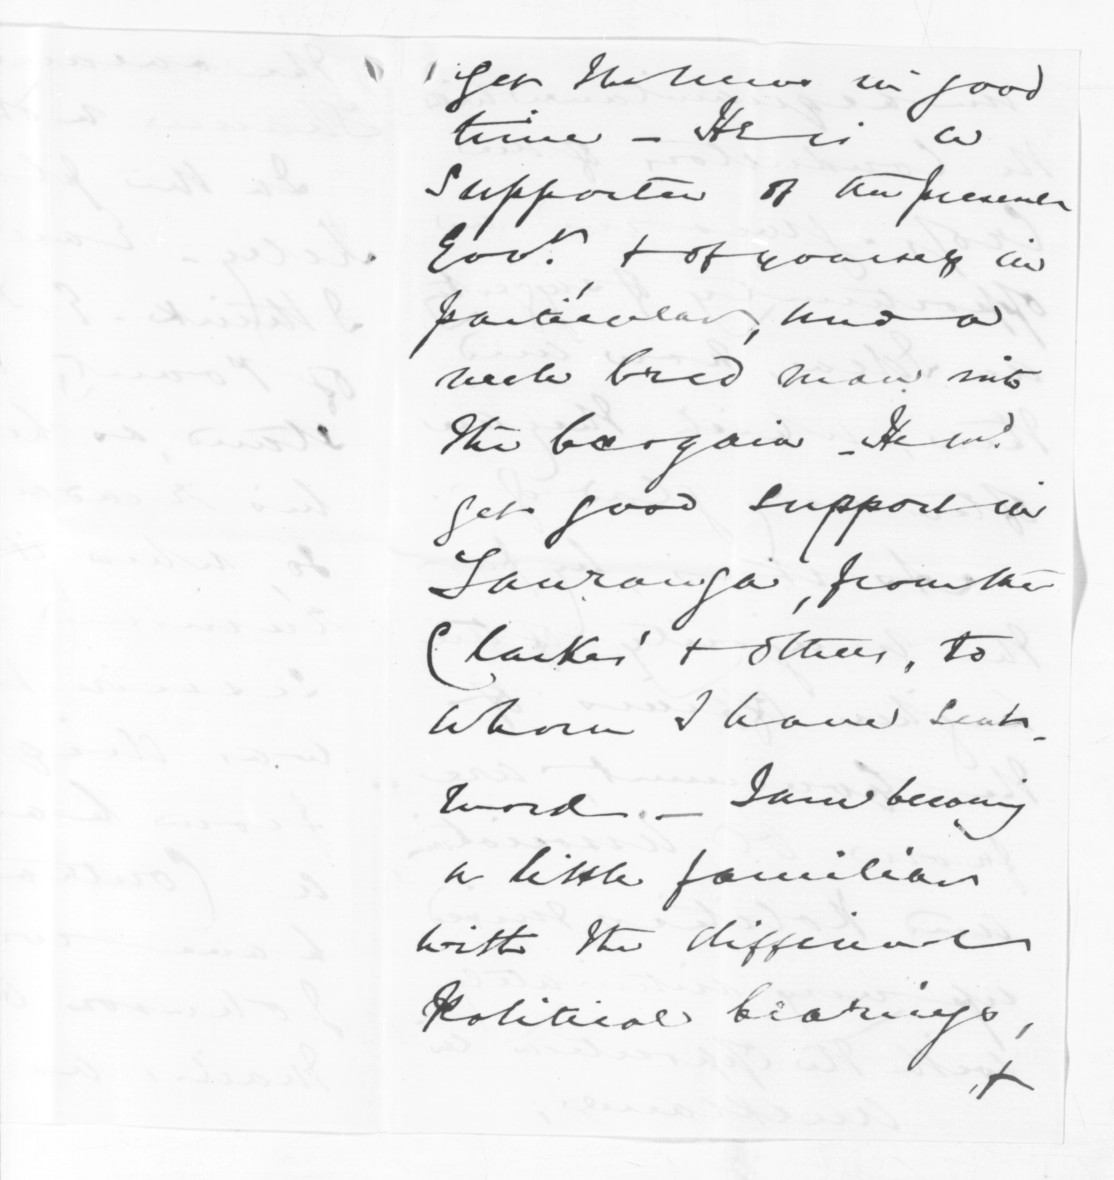 get the news in good
time — He is a
supporter of the present
Govt. & of yourself in
particular, and a
well bred man into
the bargain — He wd.
get good support in
Tauranga, from the
Clarkes' & others, to
whom I have sent
word — I am becoming
a little familiar
with the different
Political bearings,
&